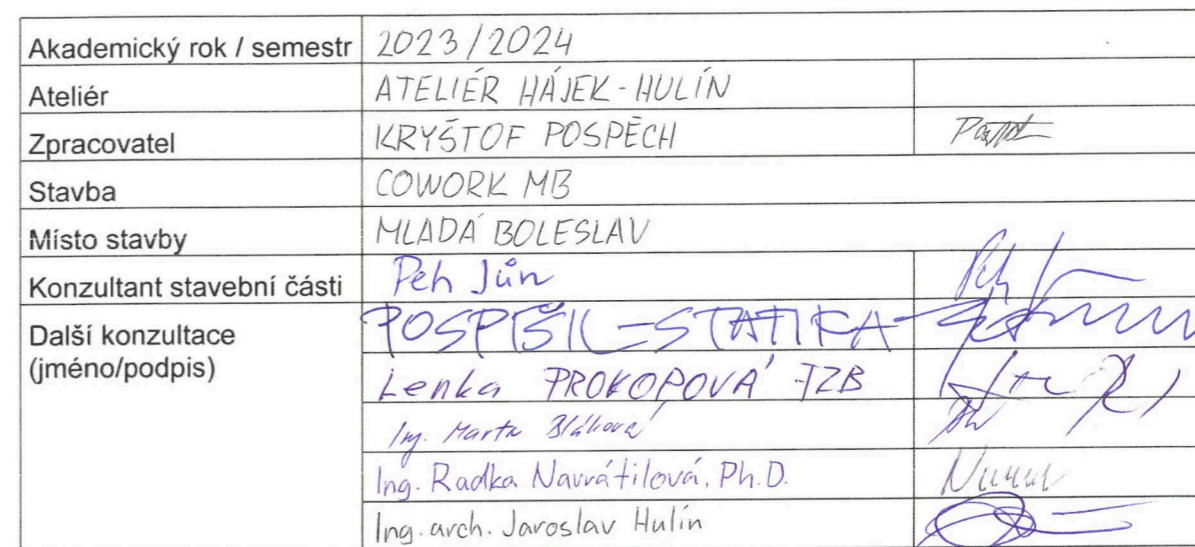 Akademický rok / semestr 2023/2024
Ateliér ATELIÉR HÁJEK-HULÍN
Zpracovatel KRYŠTOF POSPĚCH
Stavba COWORK MB
Místo stavby MLADÁ BOLESLAV
Konzultant stavební části Petr Jůn
Další konzultace POSPÍŠIL-STATIKA
(jméno/podpis)
Lenka PROKOPOVÁ TZB
Ing. Marta Bláhová
Ing. Radka Navrátilová, Ph.D.
Ing. arch. Jaroslav Hulín